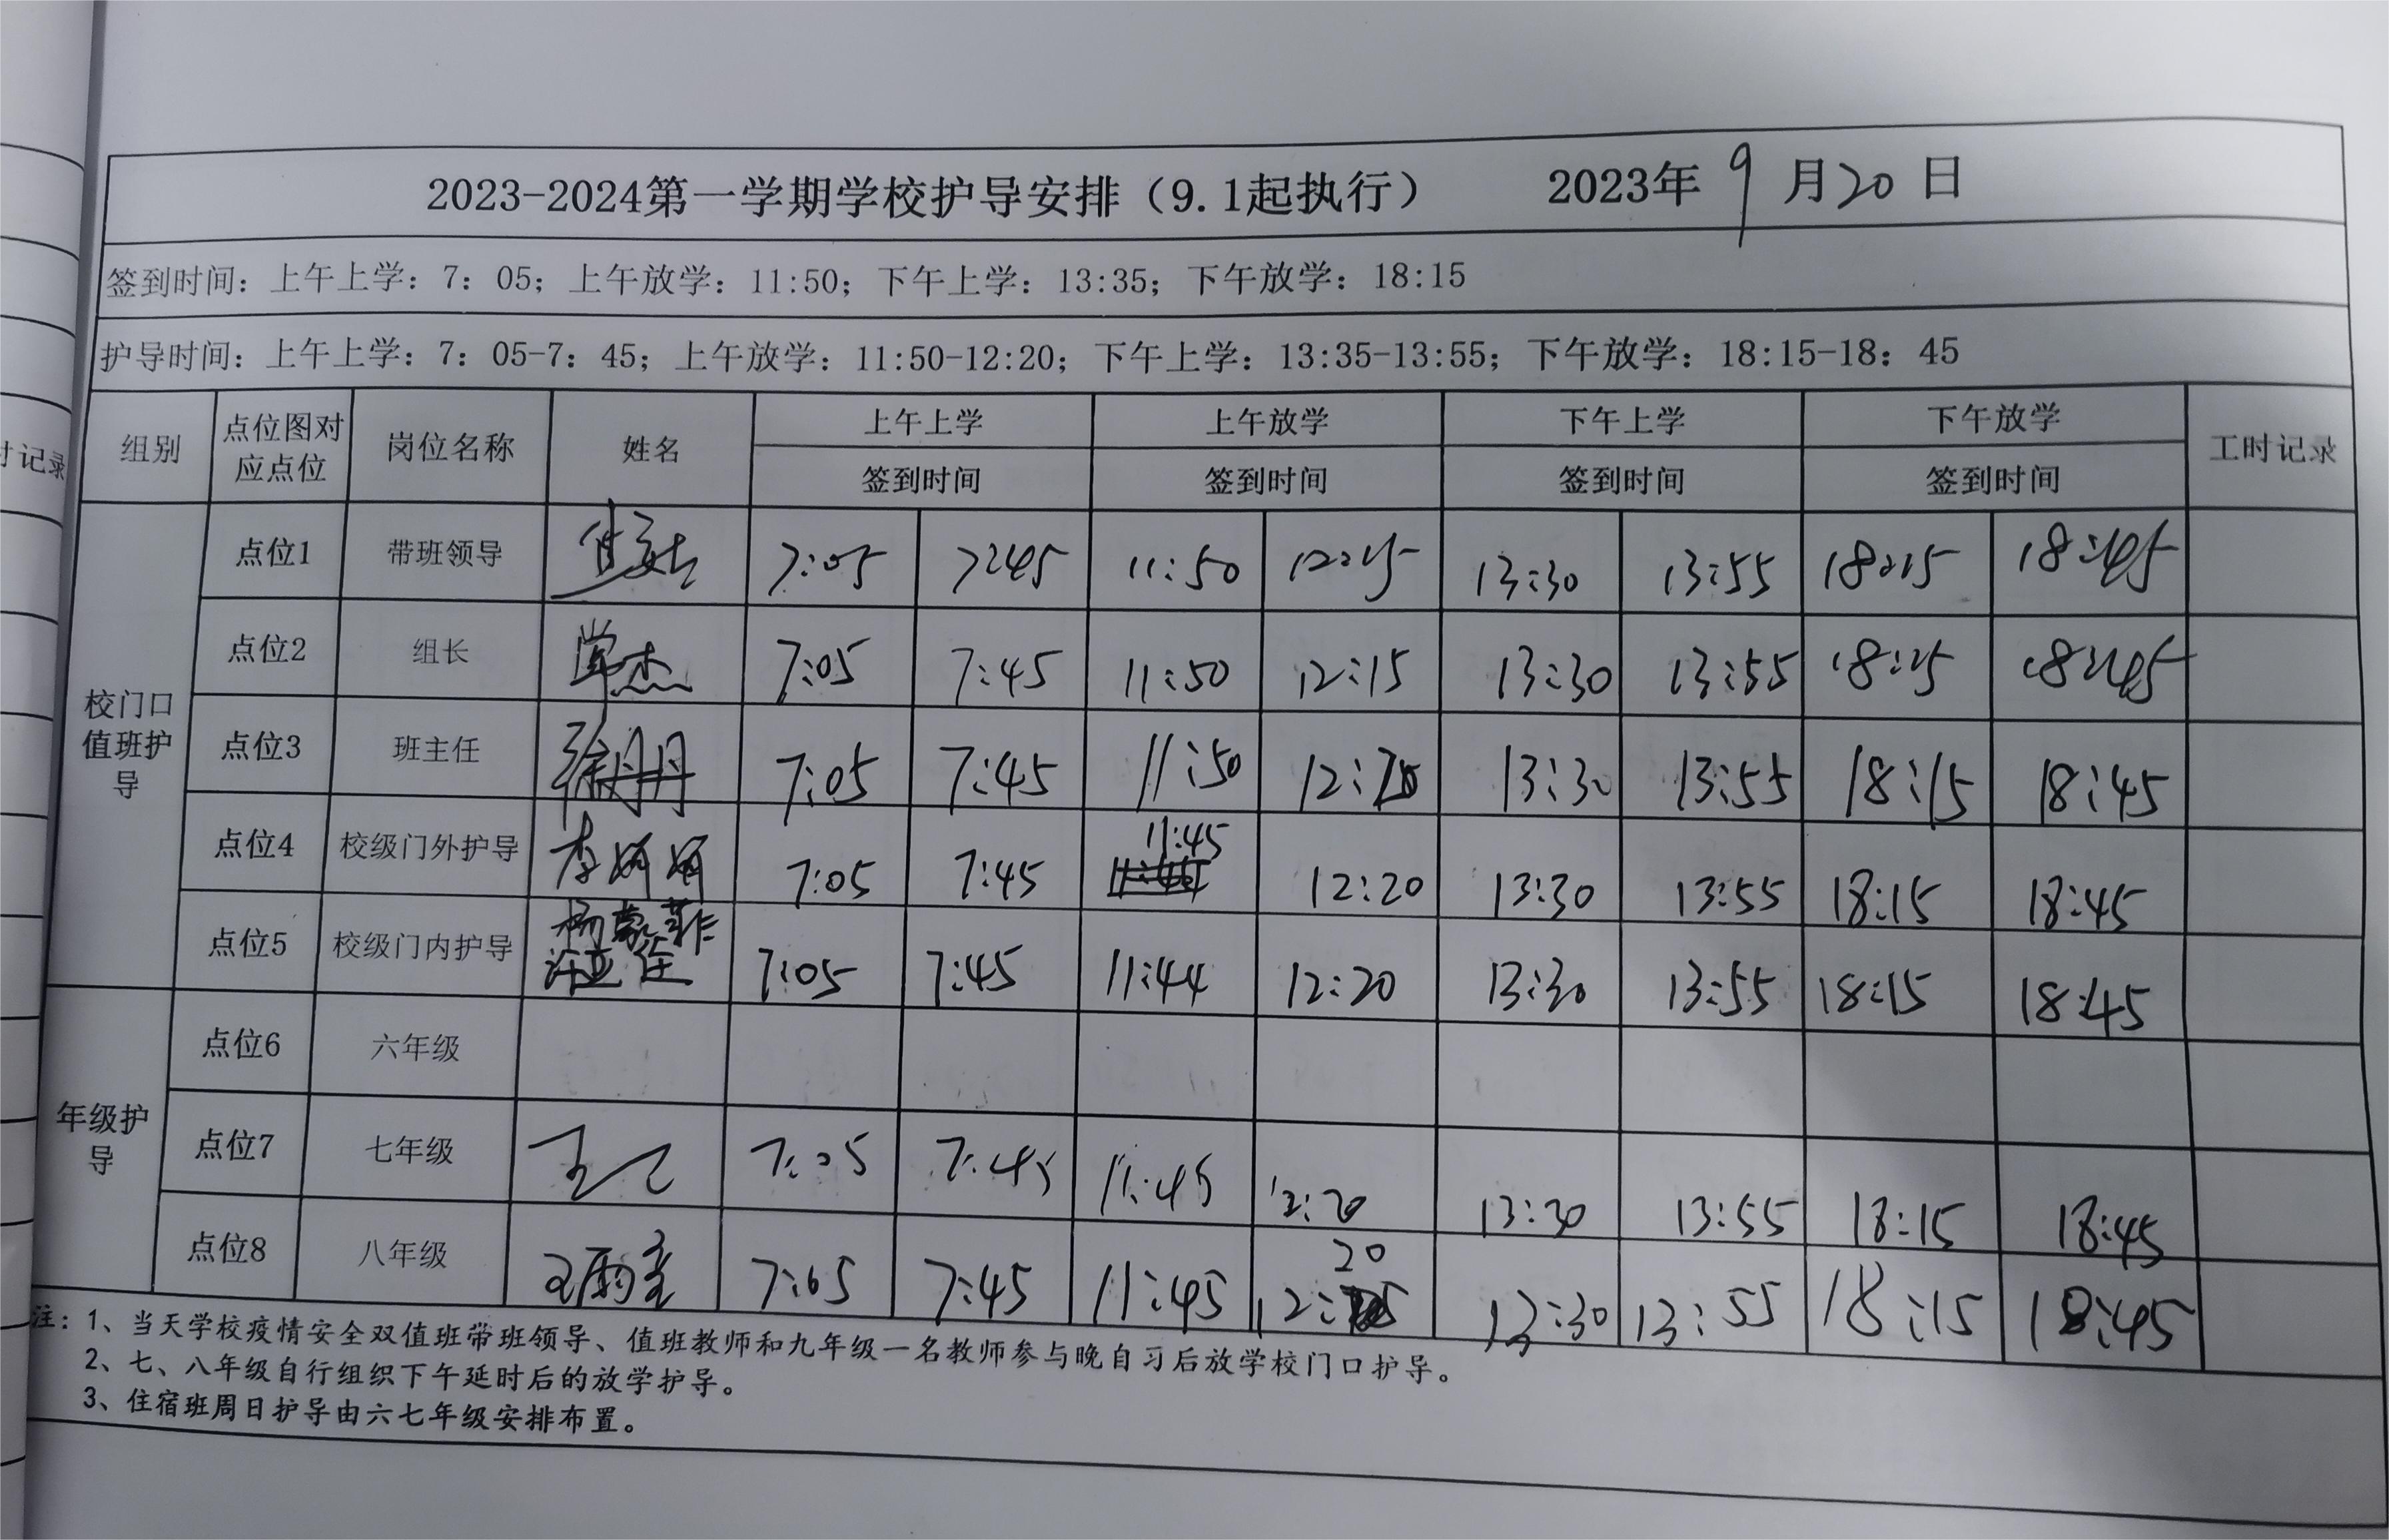 2023-2024第一学期学校护导安排（9.1起执行） 2023年 9 月 20 日
签到时间：上午上学：7：05；上午放学：11:50；下午上学：13:35；下午放学：18:15
护导时间：上午上学：7：05-7：45；上午放学：11:50-12:20；下午上学：13:35-13:55；下午放学：18:15-18：45
时记录
组别 点位图对应点位 岗位名称 姓名 上午上学 上午放学 下午上学 下午放学 工时记录
签到时间 签到时间 签到时间 签到时间
校门口值班护导
点位1 带班领导 7:05 7:45 11:50 12:15 13:30 13:55 18:15 18:45
点位2 组长 常杰 7:05 7:45 11:50 12:15 13:30 13:55 18:15 18:45
点位3 班主任 徐丹丹 7:05 7:45 11:50 12: 13:30 13:55 18:15 18:45
点位4 校级门外护导 李娟娟 7:05 7:45 11:45 12:20 13:30 13:55 18:15 18:45
点位5 校级门内护导 杨蒙菲
许亚佳 7:05 7:45 11:44 12:20 13:30 13:55 18:15 18:45
年级护导
点位6 六年级
点位7 七年级 7:05 7:45 11:45 12:20 13:30 13:55 18:15 18:45
点位8 八年级 7:05 7:45 11:45 12:20 13:30 13:55 18:15 18:45
注：1、当天学校疫情安全双值班带班领导、值班教师和九年级一名教师参与晚自习后放学校门口护导。
2、七、八年级自行组织下午延时后的放学护导。
3、住宿班周日护导由六七年级安排布置。